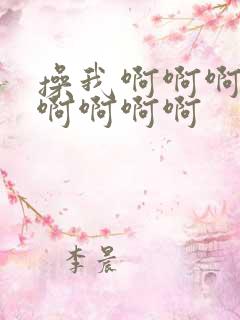 操我啊啊啊
啊啊啊啊
李晨